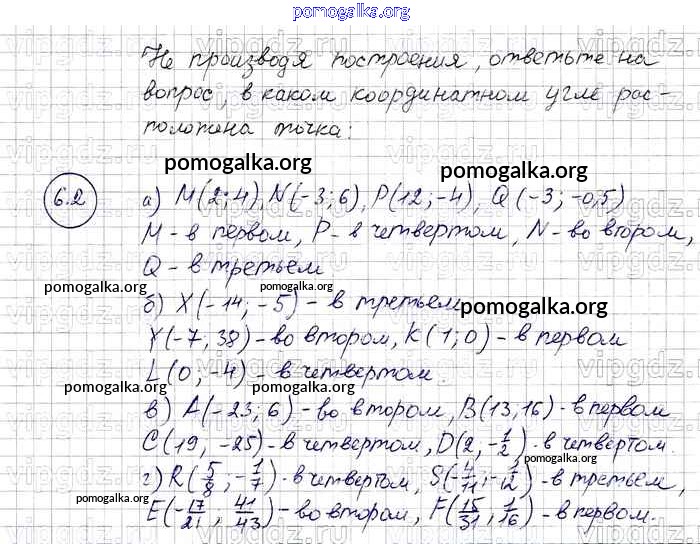 pomogalka.org
Не производя построения, ответьте на
вопрос, в каком координатном угле рас-
положена точка:
pomogalka.org pomogalka.org
6.2 а) M(2; 4), N(-3; 6), P(12; -4), Q(-3; -0,5)
M - в первом, P - в четвертом, N - во втором,
Q - в третьем
pomogalka.org pomogalka.org
б) X(-14; -5) - в третьем
pomogalka.org
Y(-7, 38) - во втором, K(1; 0) - в первом
L(0, -4) - в четвертом.
pomogalka.org pomogalka.org pomogalka.org
в) A(-23; 6) - во втором, B(13, 16) - в первом
C(19, -25) - в четвертом, D(2, -1/2) - в четвертом
г) R(5/8; -1/7) - в четвертом, S(-4/11; -1/12) - в третьем,
pomogalka.org pomogalka.org
E(-17/21; 41/43) - во втором, F(15/31; 1/16) - в первом.